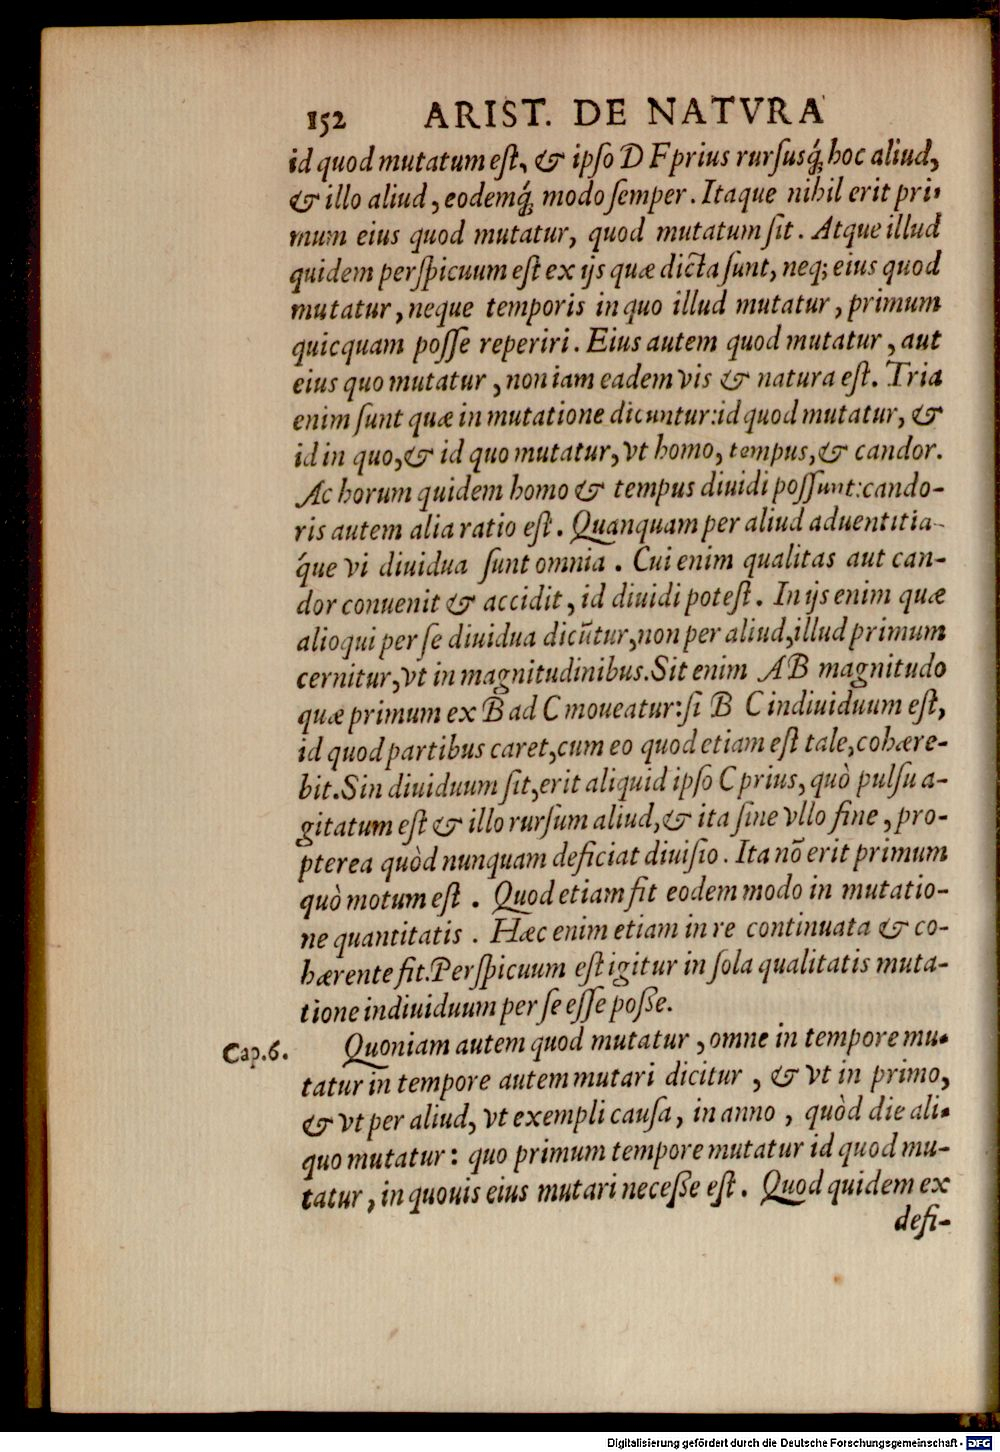 152 ARIST. DE NATVRA
id quod mutatum eſt, & ipſo D F prius rurſusq́; hoc aliud,
& illo aliud, eodemq́; modo ſemper. Itaque nihil erit pri-
mum eius quod mutatur, quod mutatum ſit. Atque illud
quidem perſpicuum eſt ex ijs quæ dicta ſunt, neq; eius quod
mutatur, neque temporis in quo illud mutatur, primum
quicquam poſſe reperiri. Eius autem quod mutatur, aut
eius quo mutatur, non iam eadem vis & natura eſt. Tria
enim ſunt quæ in mutatione dicuntur: id quod mutatur, &
id in quo, & id quo mutatur, vt homo, tempus, & candor.
Ac horum quidem homo & tempus diuidi poſſunt: cando-
ris autem alia ratio eſt. Quanquam per aliud aduentitia-
q́ue vi diuidua ſunt omnia. Cui enim qualitas aut can-
dor conuenit & accidit, id diuidi poteſt. In ijs enim quæ
alioqui per ſe diuidua dicūtur, non per aliud, illud primum
cernitur, vt in magnitudinibus. Sit enim AB magnitudo
quæ primum ex B ad C moueatur: ſi B C indiuiduum eſt,
id quod partibus caret, cum eo quod etiam eſt tale, cohære-
bit. Sin diuiduum ſit, erit aliquid ipſo C prius, quò pulſu a-
gitatum eſt & illo rurſum aliud, & ita ſine vllo fine, pro-
pterea quòd nunquam deficiat diuiſio. Ita nõ erit primum
quò motum eſt. Quod etiam fit eodem modo in mutatio-
ne quantitatis. Hæc enim etiam in re continuata & co-
hærente fit. Perſpicuum eſt igitur in ſola qualitatis muta-
tione indiuiduum per ſe eſſe poße.
Cap.6. Quoniam autem quod mutatur, omne in tempore mu-
tatur in tempore autem mutari dicitur, & vt in primo,
& vt per aliud, vt exempli cauſa, in anno, quòd die ali-
quo mutatur: quo primum tempore mutatur id quod mu-
tatur, in quouis eius mutari neceße eſt. Quod quidem ex
defi-
Digitalisierung gefördert durch die Deutsche Forschungsgemeinschaft - DFG